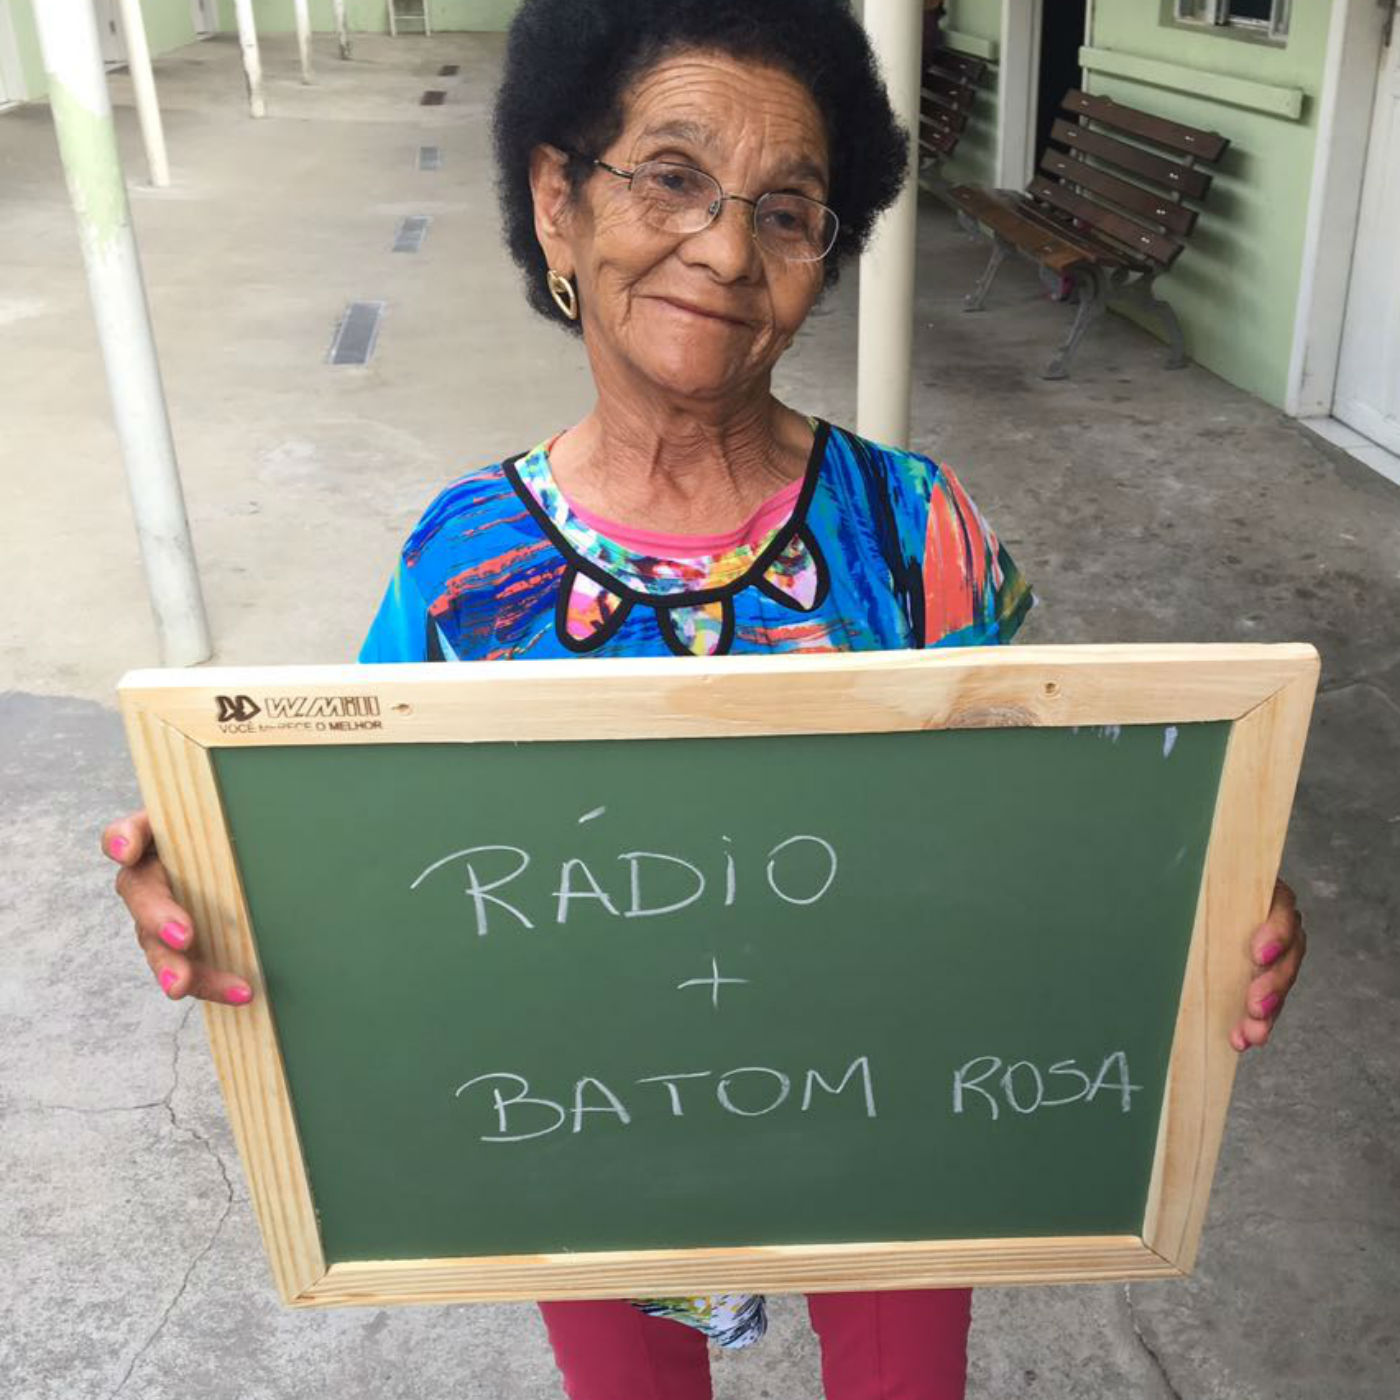 W.Mill
VOCÊ MERECE O MELHOR
RÁDiO
+
BATOM ROSA